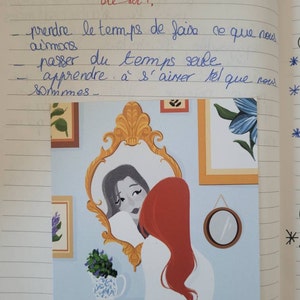 _ prendre le temps de faire ce que nous
aimons
_ passer du temps seule
_ apprendre à s'aimer tel que nous
sommes_